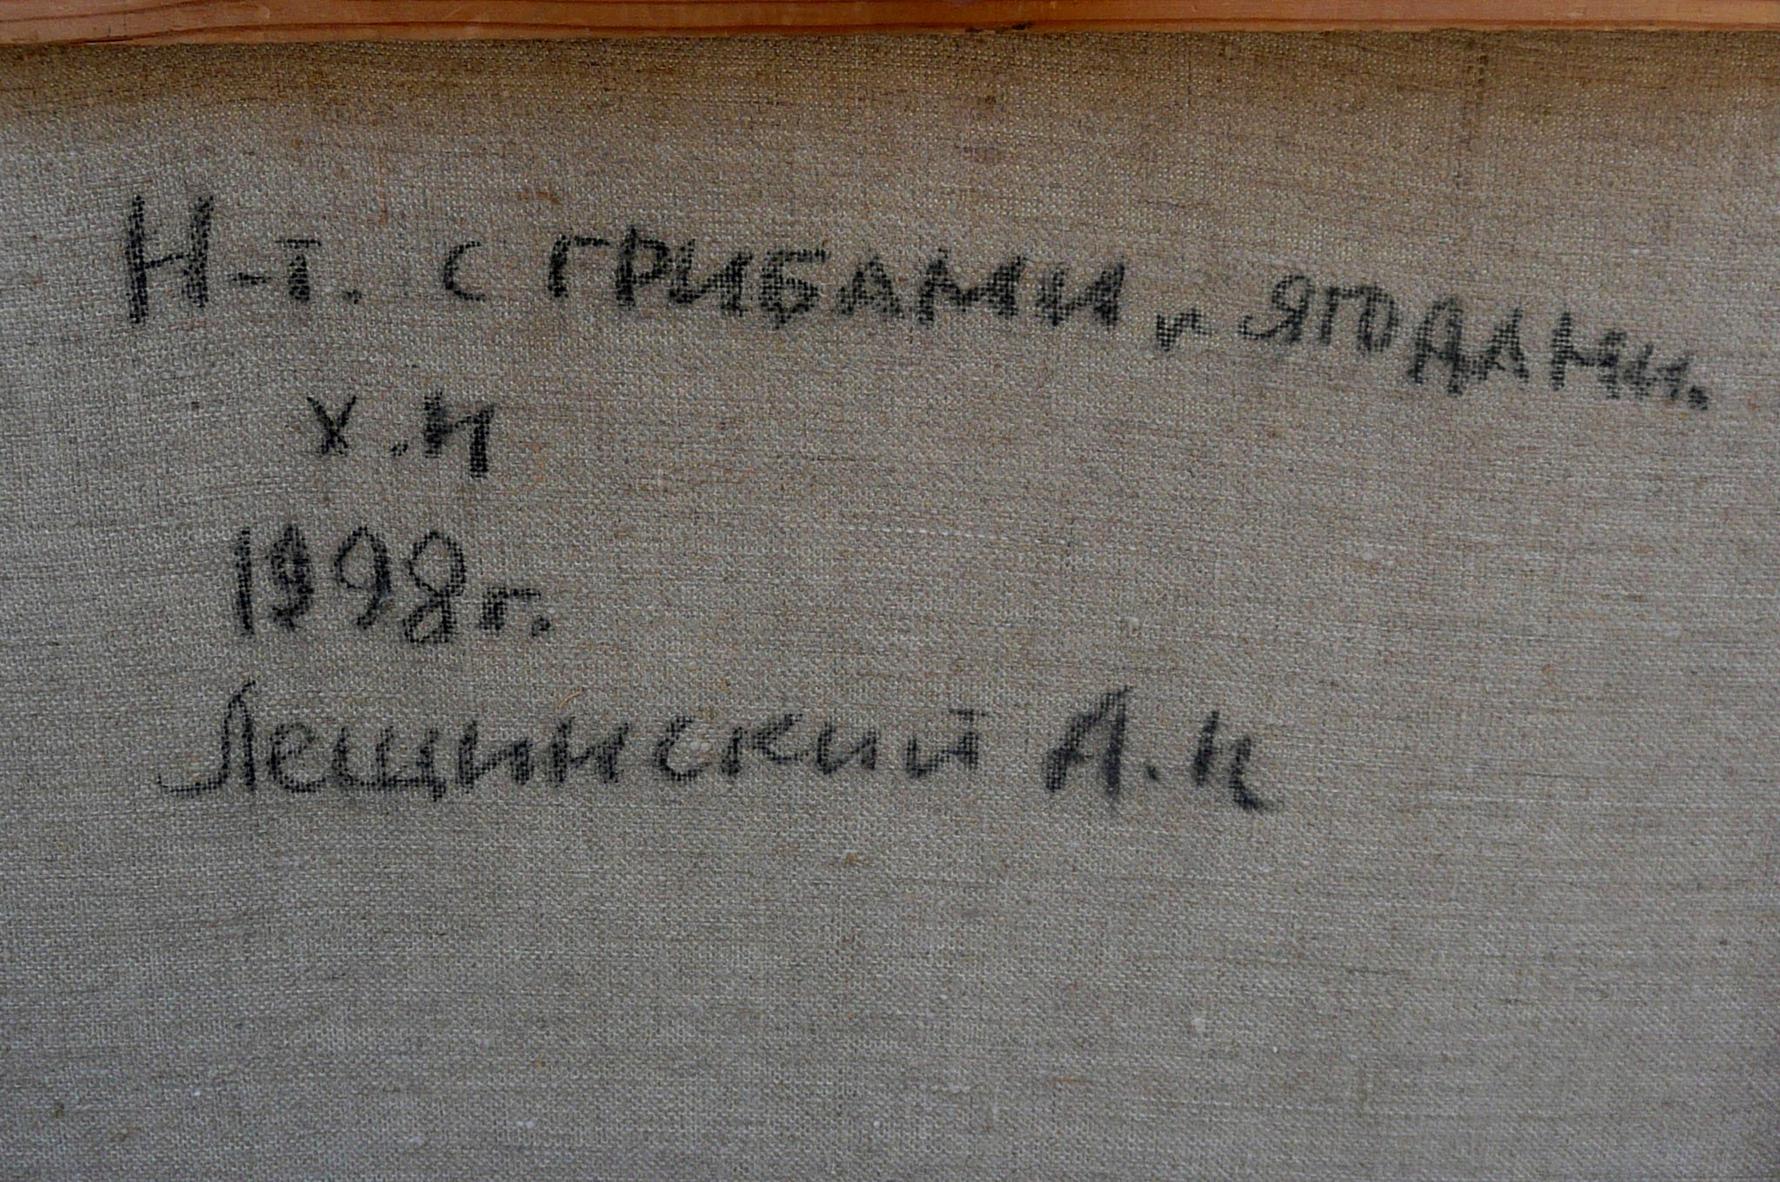 Н-т. с ГРИБАМИ и ЯГОДАМИ.
х.м
1998г.
Лещинский А.И